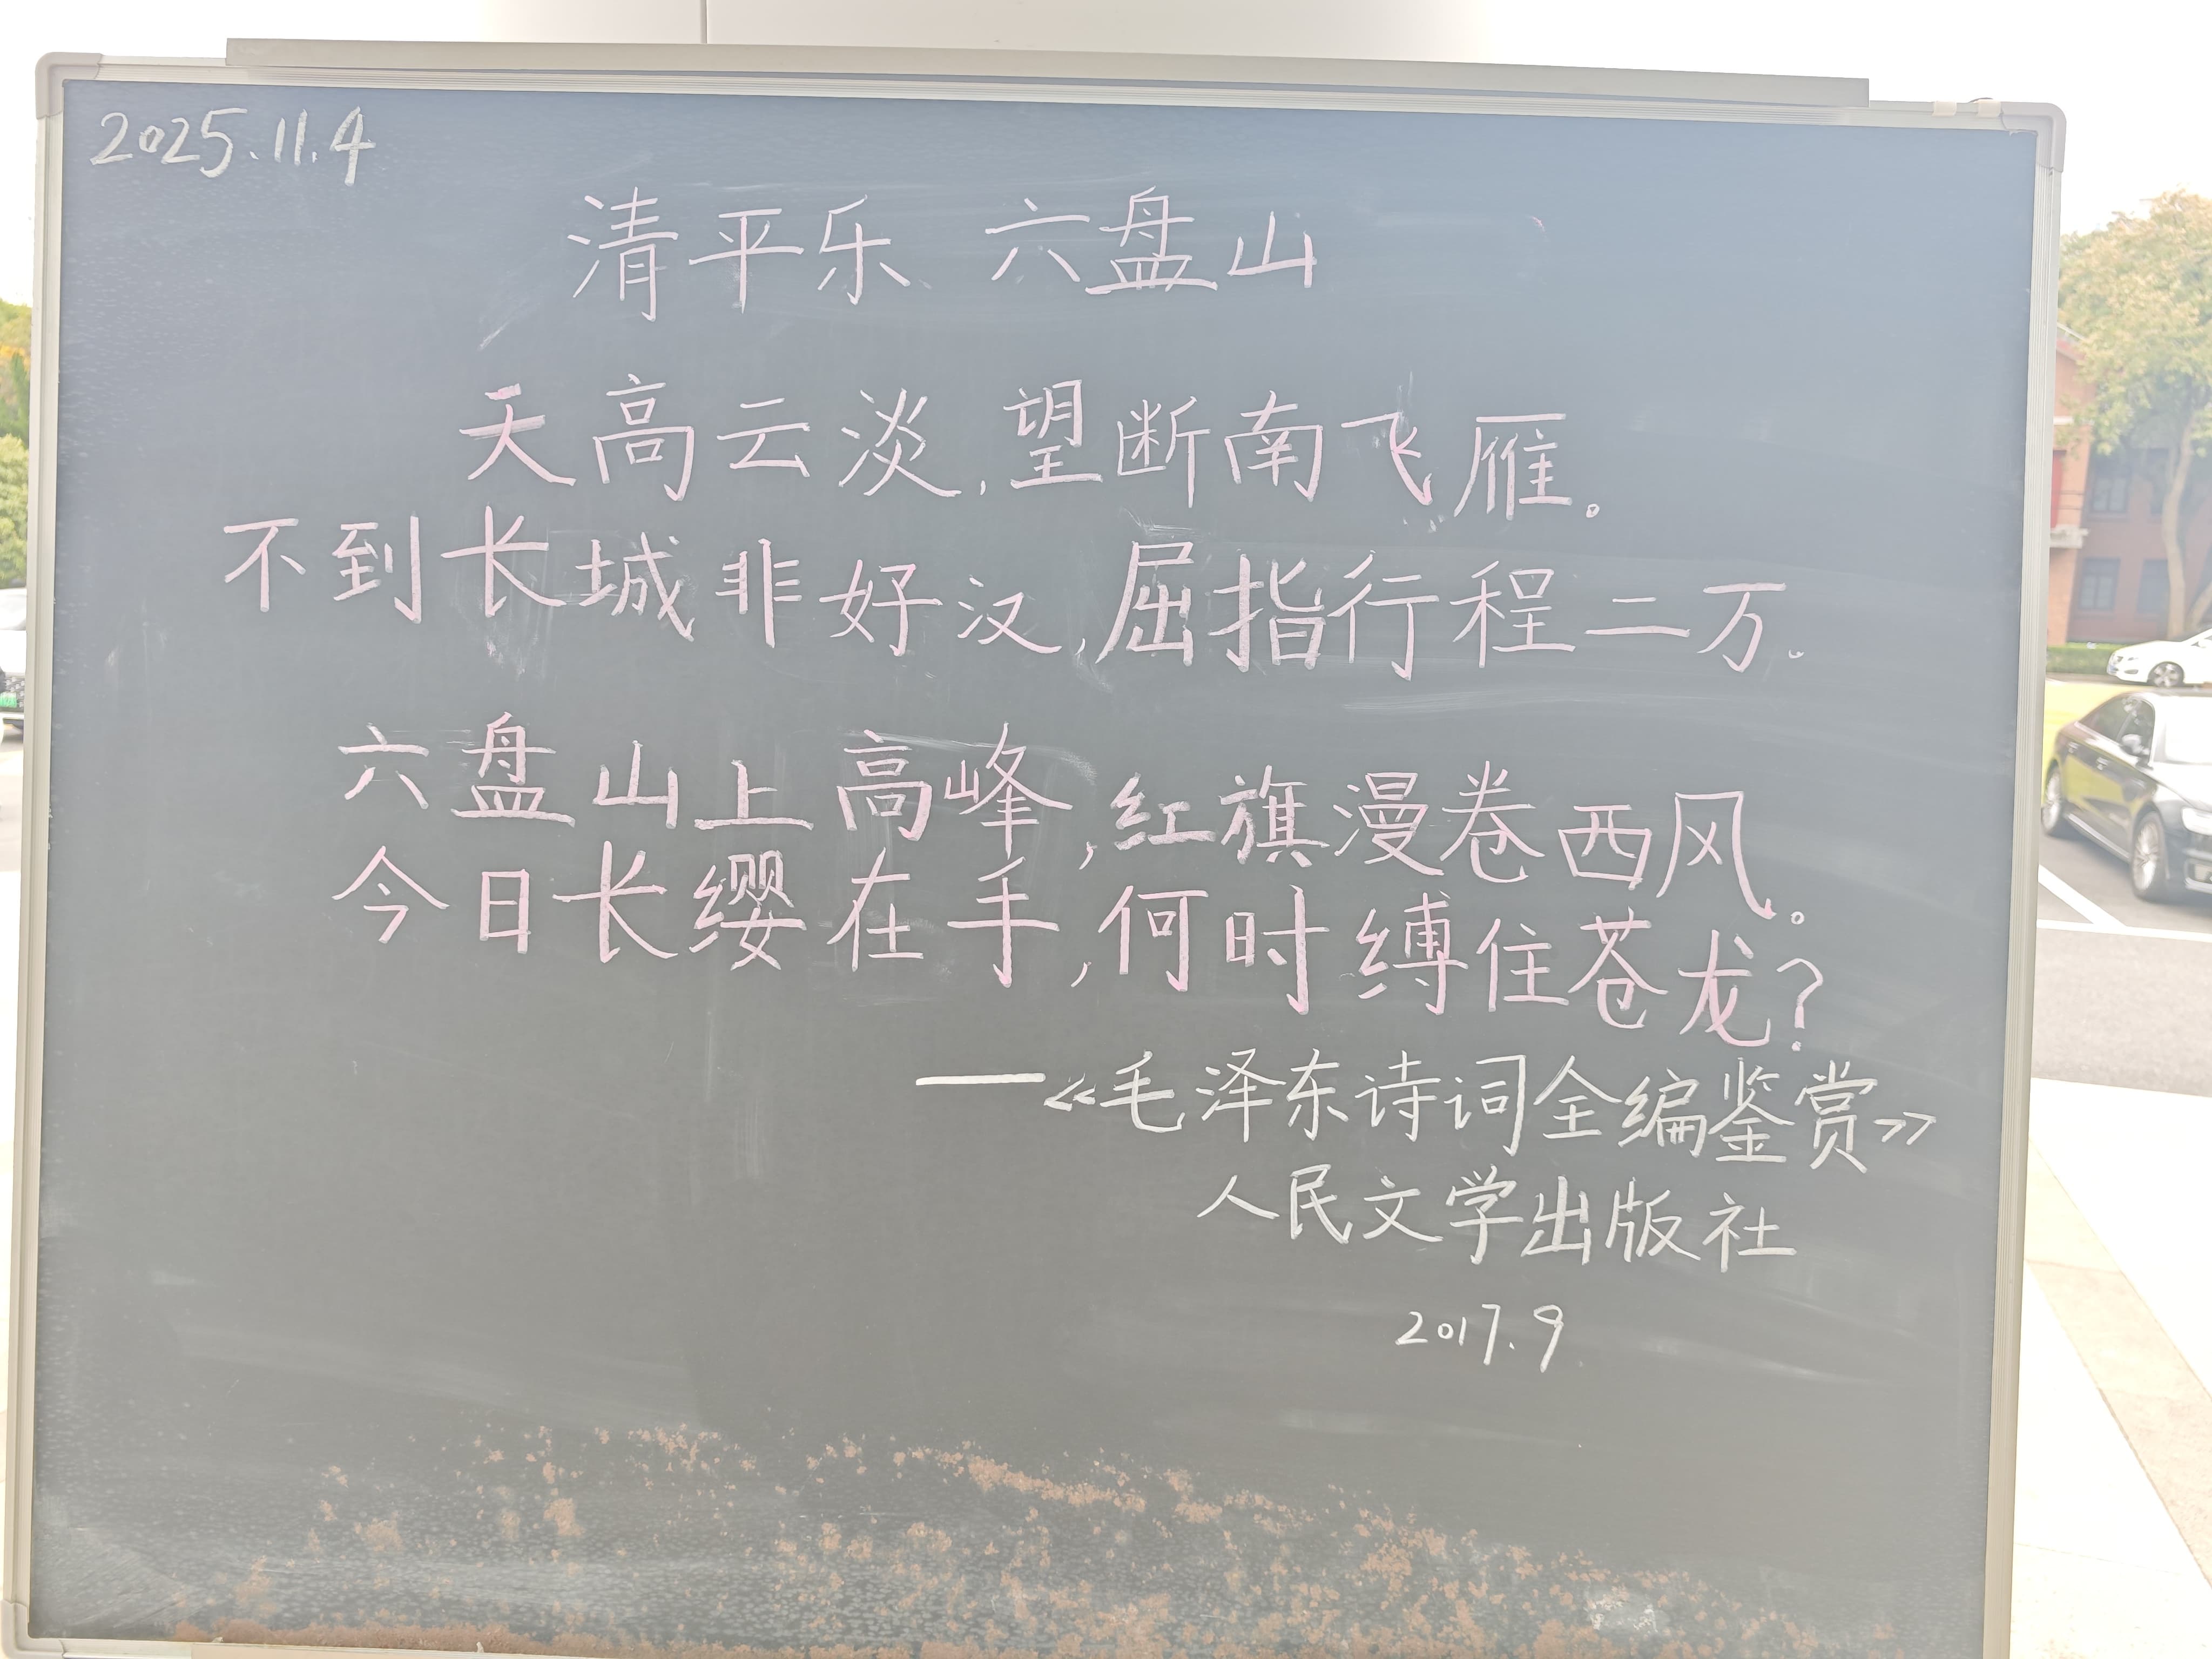 2025.11.4
清平乐、六盘山
天高云淡,望断南飞雁。
不到长城非好汉,屈指行程二万。
六盘山上高峰,红旗漫卷西风。
今日长缨在手,何时缚住苍龙?
——《毛泽东诗词全编鉴赏》
人民文学出版社
2017.9